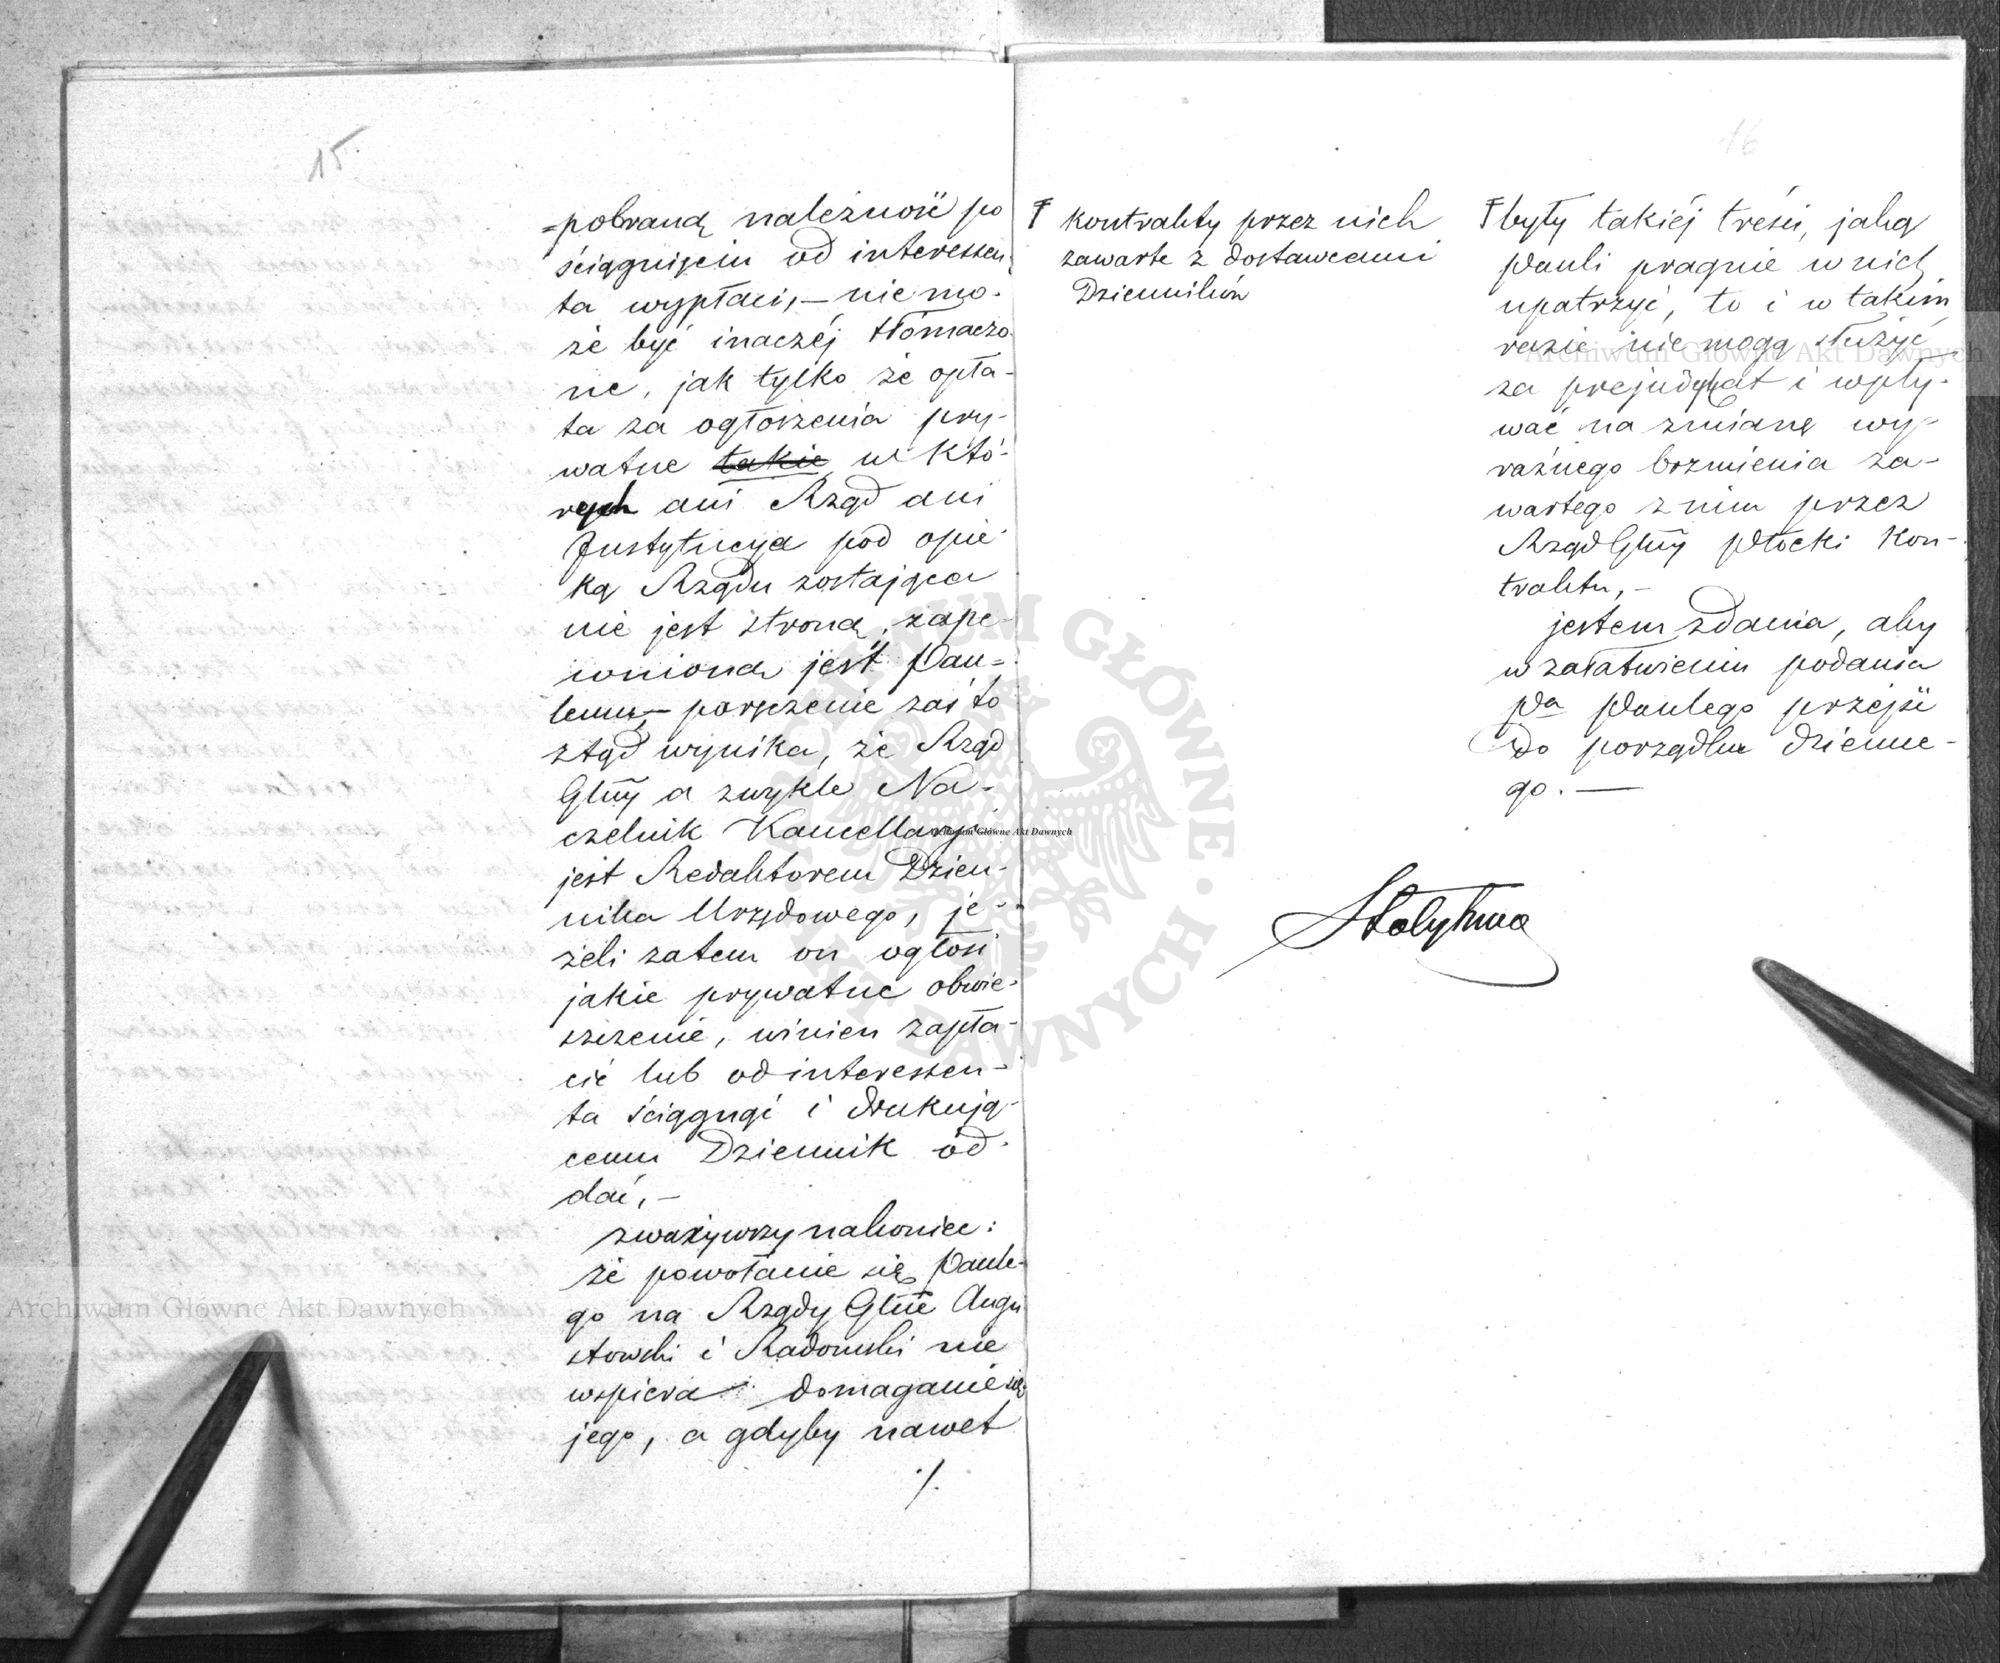 15
=pobraną należność po
ściągnięciu od interessen
ta wypłaci, — nie mo-
że być inaczéj tłómaczo
ne, jak tylko że opła-
ta za ogłoszenia pry-
watne takie w któ-
rych ani Rząd ani
Instytucya pod opie-
ką Rządu zostająca
nie jest stroną, zape-
wnioną jest Pau-
lemu, — poręczenie zaś to
ztąd wynika, że Rząd
Glny a zwykle Na-
czelnik Kancellaryi
jest Redaktorem Dzien-
nika Urzędowego, je-
żeli zatem on ogłosi
jakie prywatne obwie-
szczenie, winien zapła-
cić lub od interessen-
ta ściągnąć i drukują-
cemu Dziennik od-
dać, —
zważywszy nakoniec:
że powołanie się Paule-
go na Rządy Glne Augu
stowski i Radomski nie
wspiera domaganie się
jego, a gdyby nawet
./.
16
Ŧ kontrakty przez nich
zawarte z dostawcami
Dzienników
Ŧ były takiéj treści, jaką
Pauli pragnie w nich
upatrzyć, to i w takim
razie nie mogą służyć
za prejudykat i wpły-
wać na zmianę wy-
raźnego brzmienia za-
wartego z nim przez
Rząd Glny Płocki kon-
traktu, —
jestem zdania, aby
w załatwieniu podania
Pa Paulego przejść
do porządku dzienne-
go. —
Archiwum Główne Akt Dawnych
Archiwum Główne Akt Dawnych
Archiwum Główne Akt Dawnych
ARCHIWUM GŁÓWNE AKT DAWNYCH